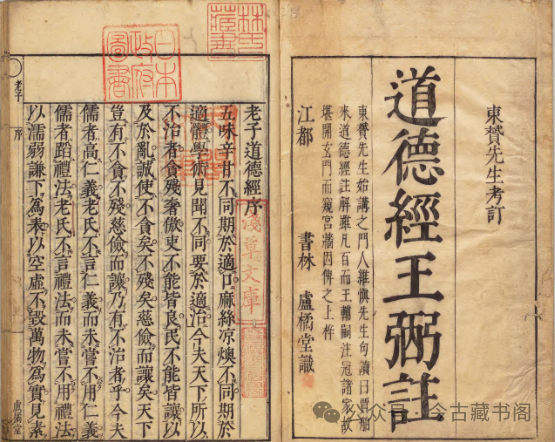 東贇先生考訂
道德經王弼註
東贇先生始講之門人維愼先生句讀曰
來道德經註解雖凡百而王輔嗣注冠諸家故
堪開玄門而窺宮牆因俾之上梓
江都 書林 盧橘堂識
林氏藏書
日本政府圖書
淺草文庫
老子道德經序
五味辛甘不同期於適口麻絲凉燠不同期於
適體學術見聞不同要於適治今夫天下所以
不治者貪殘奢傲吏不能皆良民不能皆讓以
及於亂誠使不貪矣不殘矣慈儉而讓矣天下
豈有不貪不殘慈儉而讓乃有不治者乎今夫
儒者高仁義老氏不言仁義而未嘗不用仁義
儒者蹈禮法老氏不言禮法而未嘗不用禮法
以濡弱謙下爲表以空虛不毀萬物爲實見素
老子 序
盧橘堂
公众号 今古藏书阁